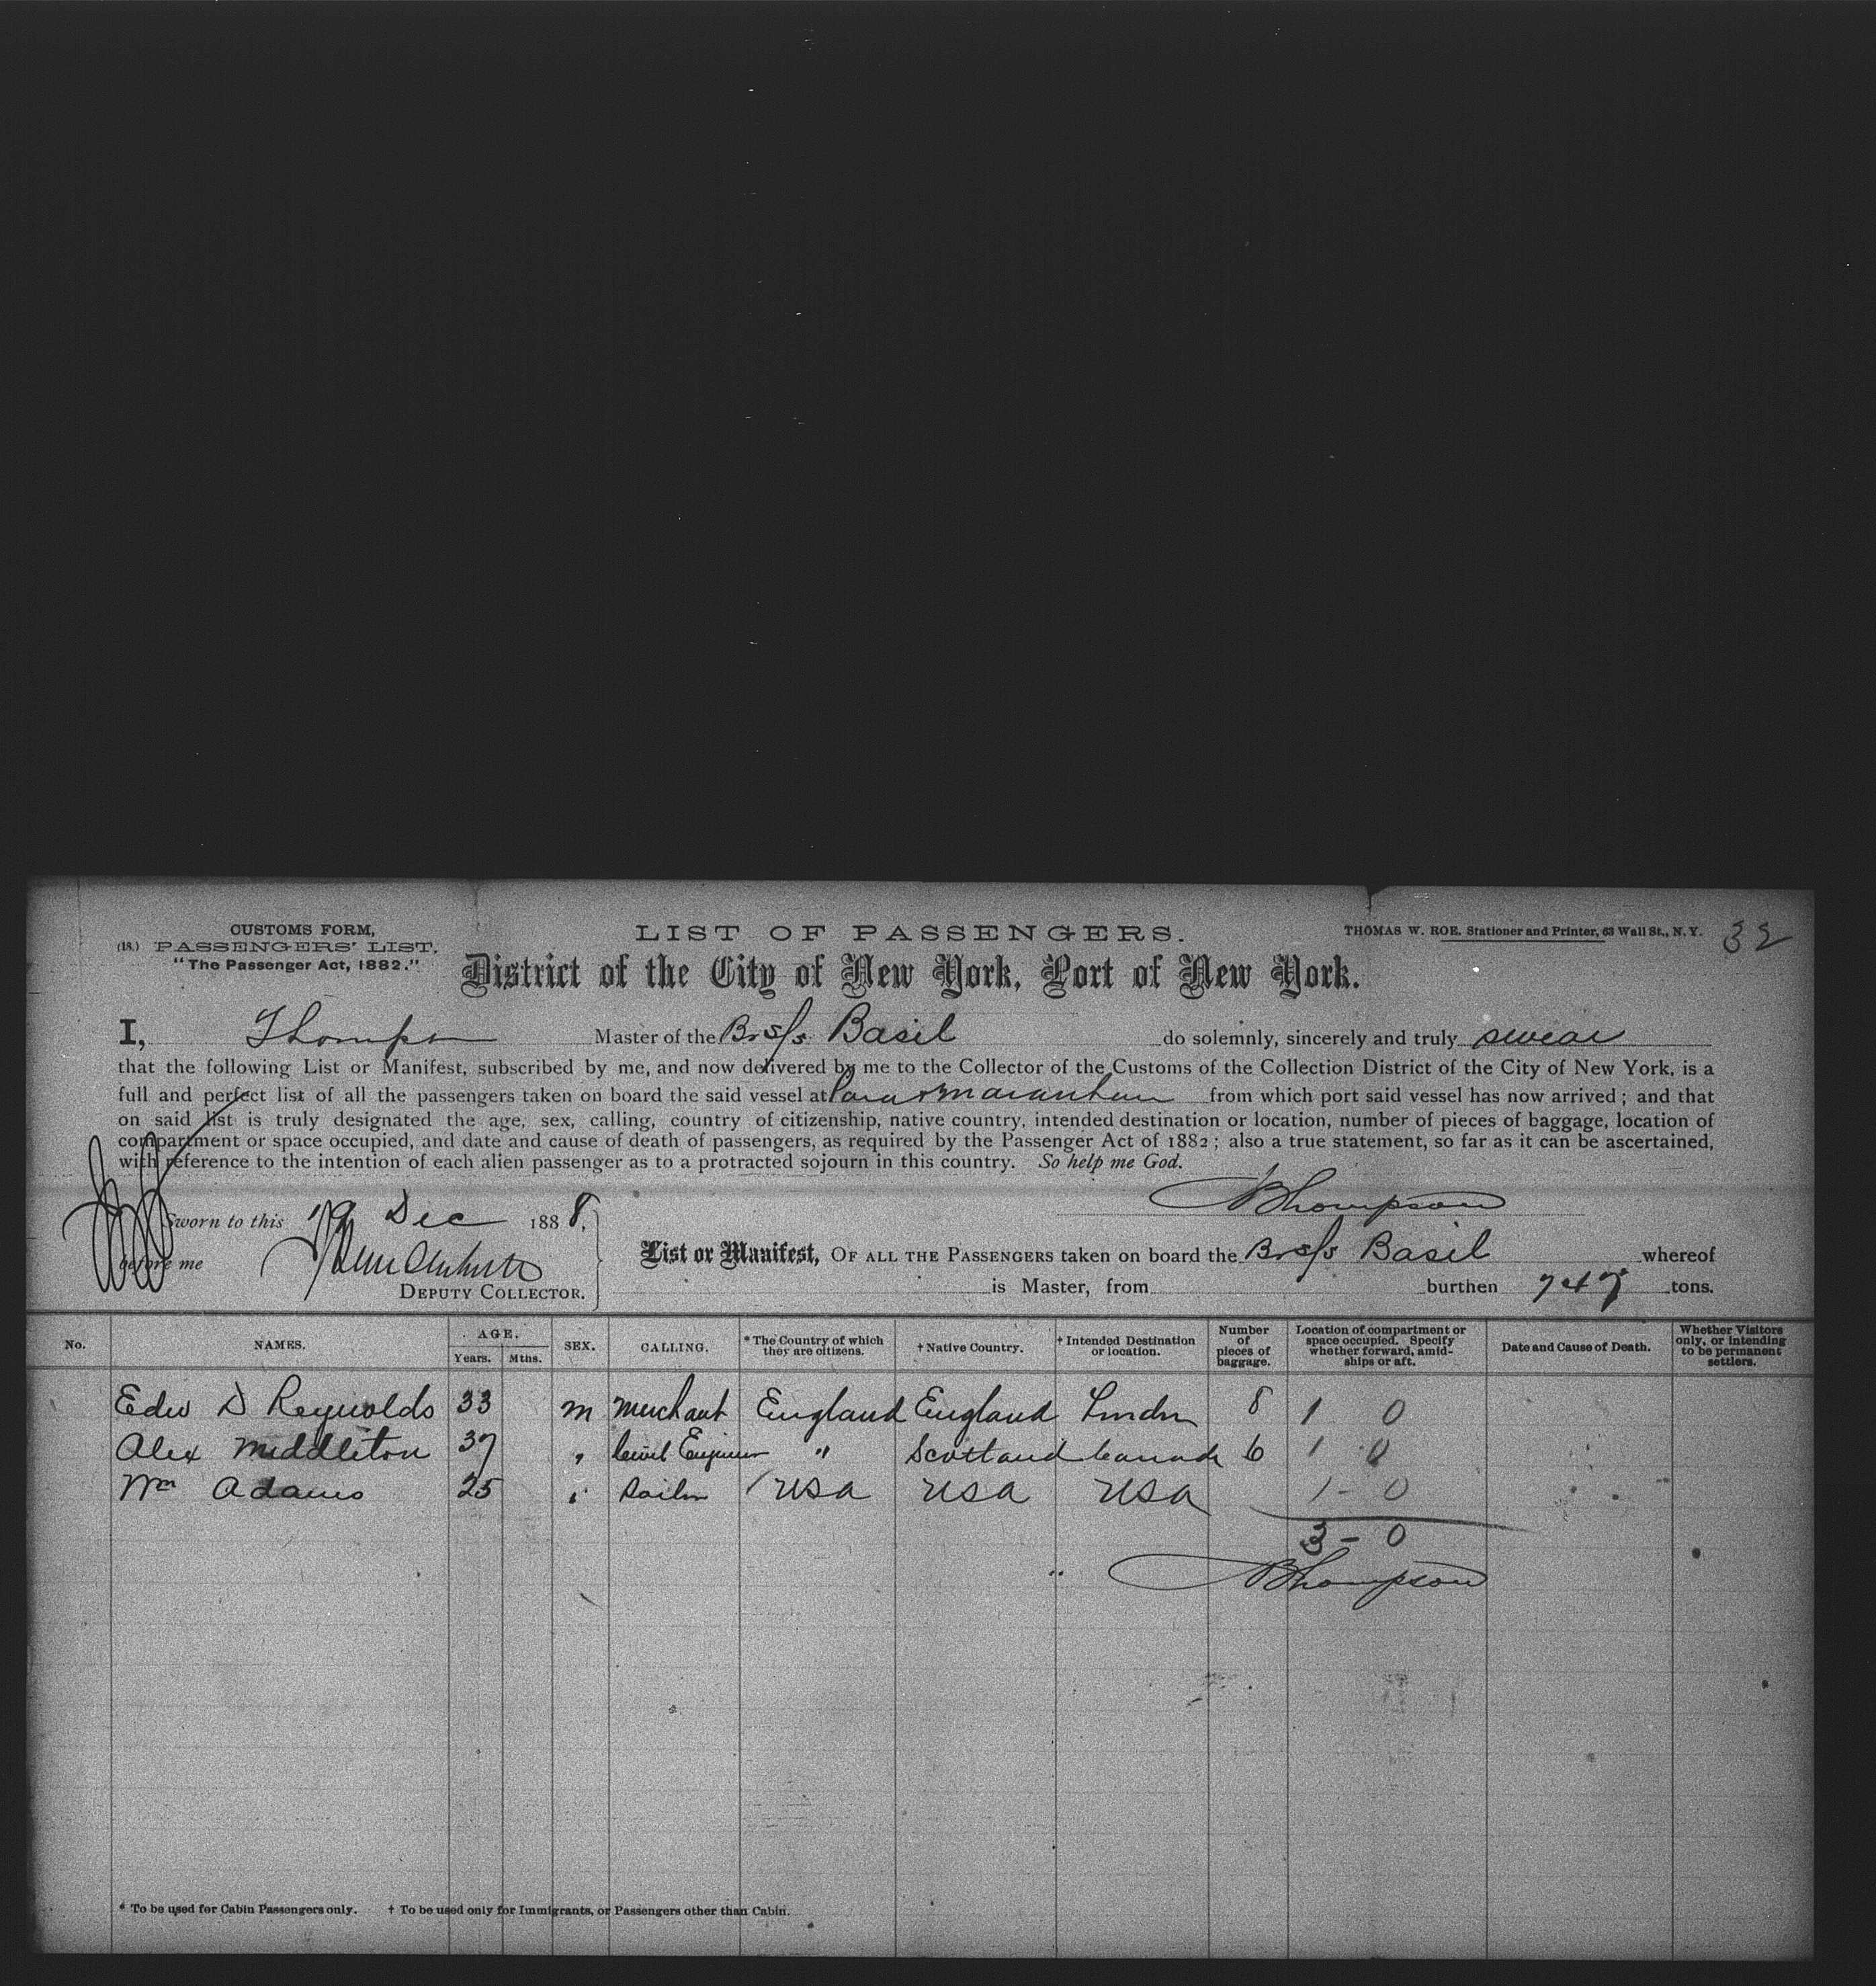 CUSTOMS FORM,
(18.) PASSENGERS' LIST.
"The Passenger Act, 1882."
LIST OF PASSENGERS.
THOMAS W. ROE. Stationer and Printer, 63 Wall St., N. Y.
32
District of the City of New York, Port of New York.
I, Thompson Master of the Br s/s Basil do solemnly, sincerely and truly swear
that the following List or Manifest, subscribed by me, and now delivered by me to the Collector of the Customs of the Collection District of the City of New York, is a
full and perfect list of all the passengers taken on board the said vessel at Para & Maranham from which port said vessel has now arrived; and that
on said list is truly designated the age, sex, calling, country of citizenship, native country, intended destination or location, number of pieces of baggage, location of
compartment or space occupied, and date and cause of death of passengers, as required by the Passenger Act of 1882; also a true statement, so far as it can be ascertained,
with reference to the intention of each alien passenger as to a protracted sojourn in this country. So help me God.
Thompson
Sworn to this 19 Dec 1888,
before me
DEPUTY COLLECTOR.
List or Manifest, OF ALL THE PASSENGERS taken on board the Br s/s Basil whereof
is Master, from burthen 747 tons.
No. NAMES. AGE. Years. Mths. SEX. CALLING. *The Country of which they are citizens. † Native Country. † Intended Destination or location. Number of pieces of baggage. Location of compartment or space occupied. Specify whether forward, amidships or aft. Date and Cause of Death. Whether Visitors only, or intending to be permanent settlers.
Edw D Reynolds 33 m Merchant England England London 8 1 0
Alex Middleton 37 " Civil Engineer " Scotland Canada 6 1 0
Wm Adams 25 " Sailor USA USA USA 1 - 0
3 - 0
Thompson
* To be used for Cabin Passengers only. † To be used only for Immigrants, or Passengers other than Cabin.